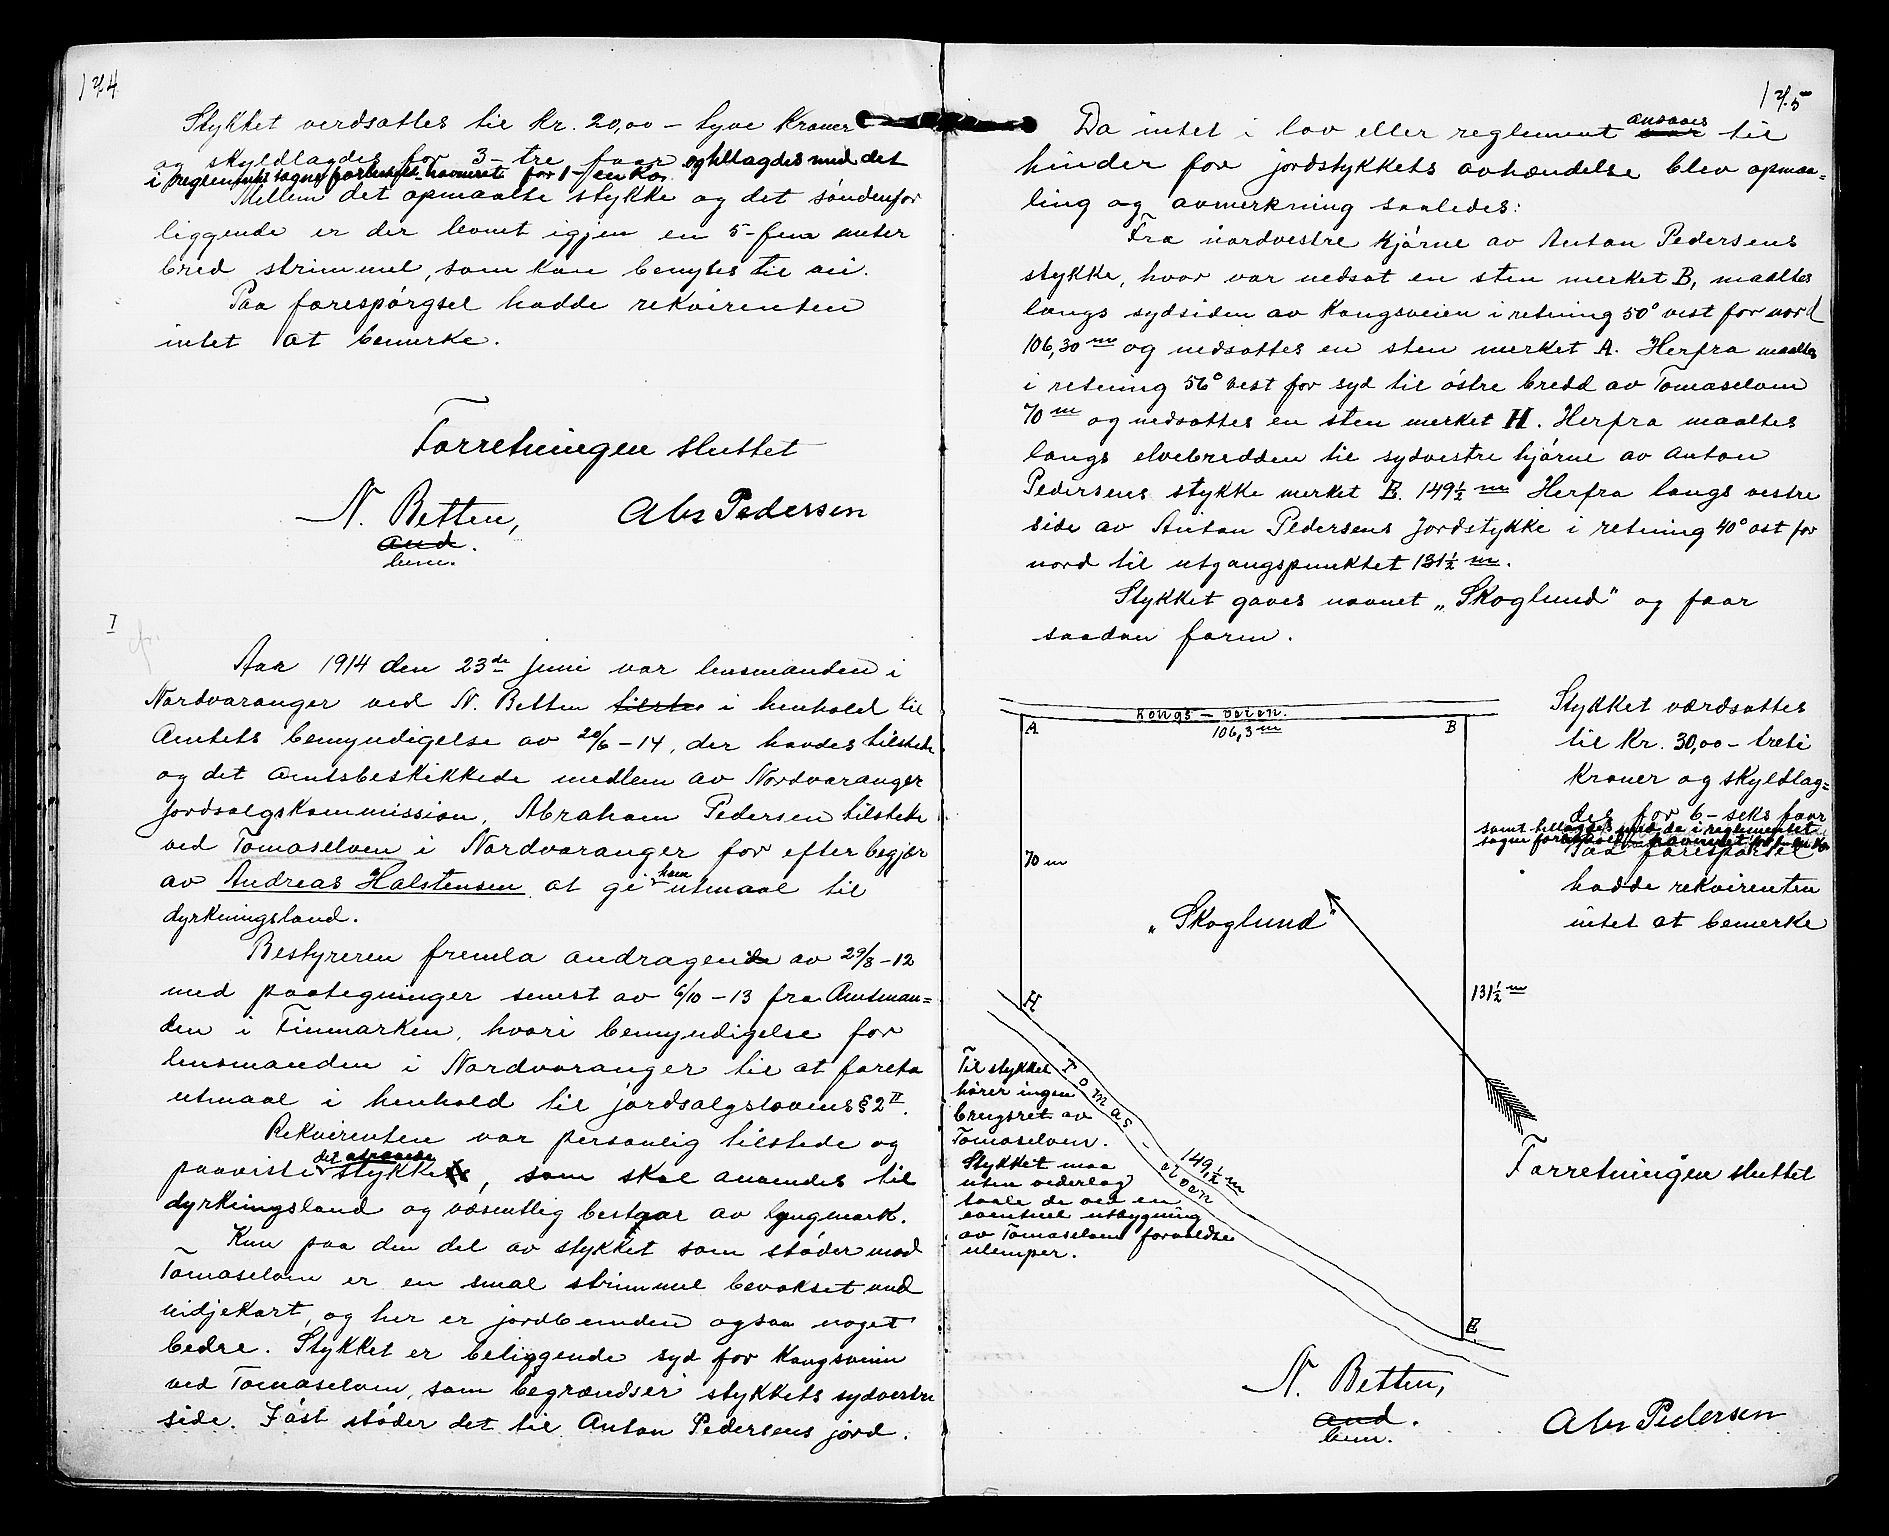 174
Stykket verdsattes til kr. 20,00 - tyve kroner
og skyldlagdes for 3 - tre faar og tillagdes med det
i reglementet sagns forhold havneret for 1 - en ko.
Mellem det opmaalte stykke og det søndenfor
liggende er der levnet igjen en 5 - fem meter
bred strimmel, som kan benyttes til vei.
Paa forespørgsel hadde rekvirenten
intet at bemerke.
Forretningen sluttet
N. Betten, Abr Pedersen
bem.
I
Aar 1914 den 23de juni var lensmanden i
Nordvaranger ved N. Betten i henhold til
Amtets bemyndigelse av 20/6 - 14, der havdes tilstede
og det Amtsbeskikkede medlem av Nordvaranger
jordsalgskommission, Abraham Pedersen tilstede
ved Tomaselven i Nordvaranger for efter begjær
av Andreas Halstensen at gi ham utmaal til
dyrkningsland.
Bestyreren fremla andragende av 29/8 - 12
med paategninger senest av 6/10 - 13 fra Amtman=
den i Finmarken, hvori bemyndigelse for
lensmanden i Nordvaranger til at foreta
utmaal i henhold til jordsalgslovens § 2 II.
Rekvirenten var personlig tilstede og
paaviste det attraaede stykke, som skal anvendes til
dyrkningsland og væsentlig bestaar av lyngmark.
Kun paa den del av stykket som støder mod
Tomaselven er en smal strimmel bevokset med
vidjekart, og her er jordbunden ogsaa noget
bedre. Stykket er beliggende syd for Kongsveien
ved Tomaselven, som begrændser stykkets sydvestre
side. I øst støder det til Anton Pedersens jord.
175
Da intet i lov eller reglement ansaaes til
hinder for jordstykkets avhændelse blev opmaa=
ling og avmerkning saaledes:
Fra nordvestre hjørne av Anton Pedersens
stykke, hvor var nedsat en sten merket B, maaltes
langs sydsiden av Kongsveien i retning 50° vest for nord
106,30 m og nedsattes en sten merket A. Herfra maaltes
i retning 56° vest for syd til østre bredd av Tomaselven
70 m og nedsattes en sten merket H. Herfra maaltes
langs elvebredden til sydvestre hjørne av Anton
Pedersens stykke merket E. 149½ m Herfra langs vestre
side av Anton Pedersens Jordstykke i retning 40° ost for
nord til utgangspunktet 131½ m.
Stykket gaves navnet „Skoglund" og faar
saadan form.
Kongs - veien.
106,3 m
A
B
70 m
„Skoglund"
131½ m
H
Tomas - elven
149,½ m
E.
Stykket værdsattes
til Kr. 30,00 - treti
kroner og skyldlag=
des for 6 - seks faar
samt tillagdes med de i reglementet
sagns forhold havneret for 1 - en ko
Paa forespørsel
hadde rekvirenten
intet at bemerke
Til stykket
hører ingen
brugsret av
Tomaselven.
Stykket maa
uten vederlag
taale de ved en
eventuel utbygning
av Tomaselven forvoldte
ulemper.
Forretningen sluttet
N. Betten,
bem.
Abr Pedersen